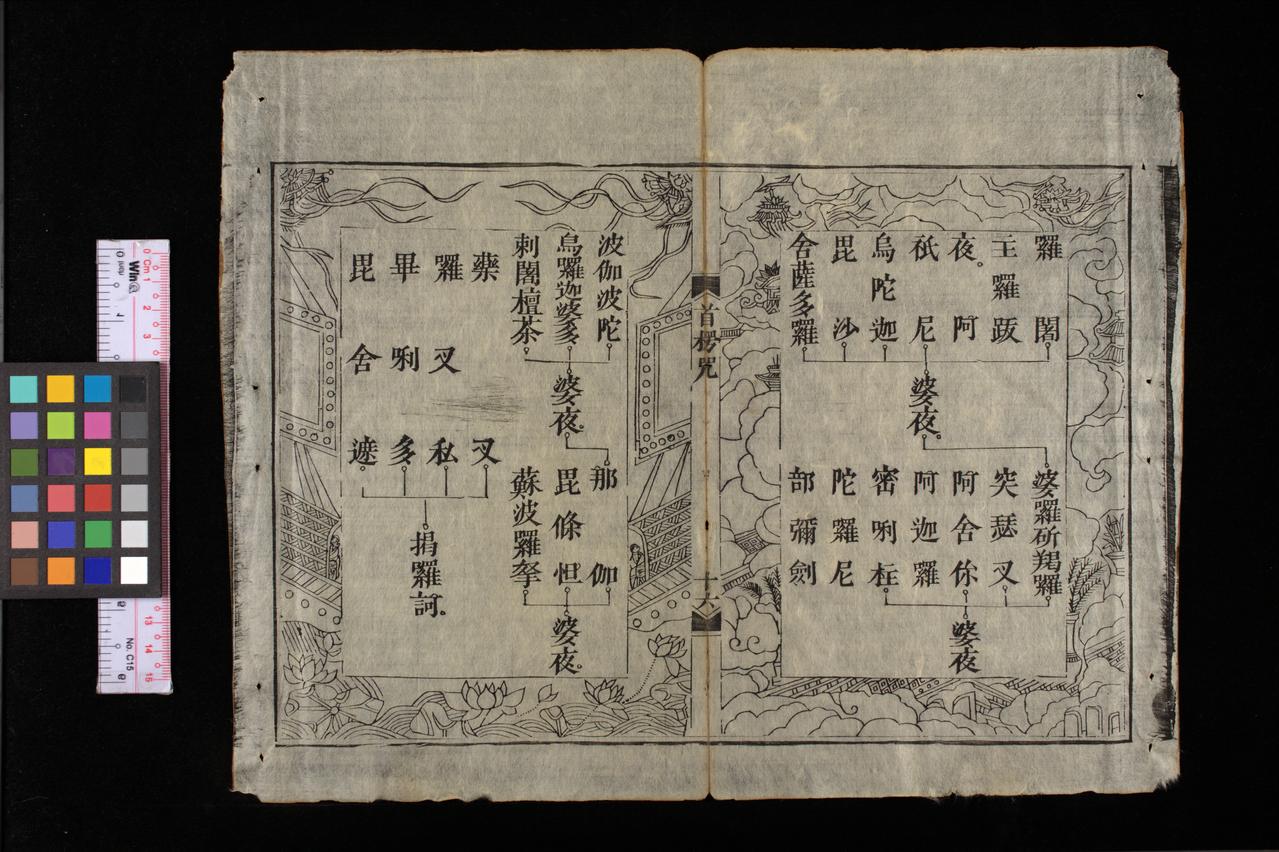 羅闍
主羅跋
夜。阿
祇尼
烏陀迦
毘沙
舍薩多羅
婆夜。
婆羅斫羯羅
突瑟叉
阿舍你
阿迦羅
密唎柱
陀羅尼
部彌劍
婆夜
首楞咒
十六
波伽波陀
烏羅迦婆多
剌闍檀茶
婆夜。
那伽
毘條怛
蘇波羅拏
婆夜。
藥叉
羅叉私
畢唎多
毘舍遮
揭羅訶。
0 Cm 1 2 3
13 14 15
No. C15